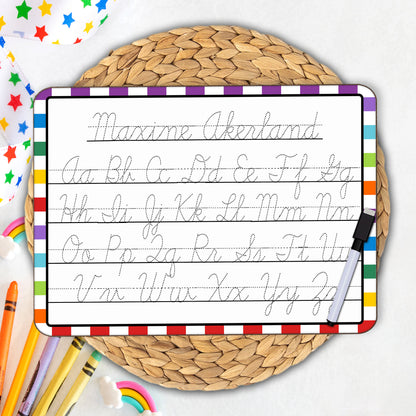 Maxine Akerland
Aa Bb Cc Dd Ee Ff Gg
Hh Ii Jj Kk Ll Mm Nn
Oo Pp Qq Rr Ss Tt Uu
Vv Ww Xx Yy Zz